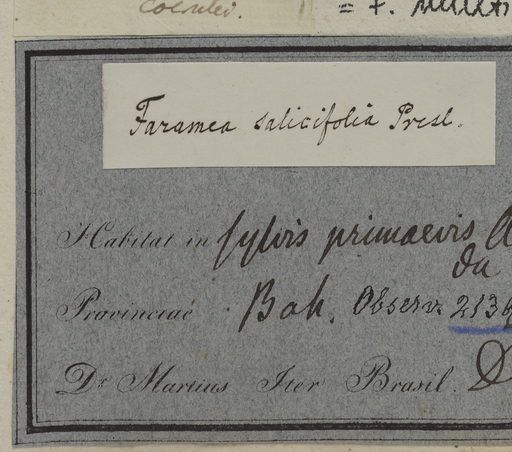 coerulei.
= F.
Faramea salicifolia Presl.
Habitat in sylvis primaevis
du
Provinciae Bah. Observ. 213
Dr. Martius Iter Brasil. D